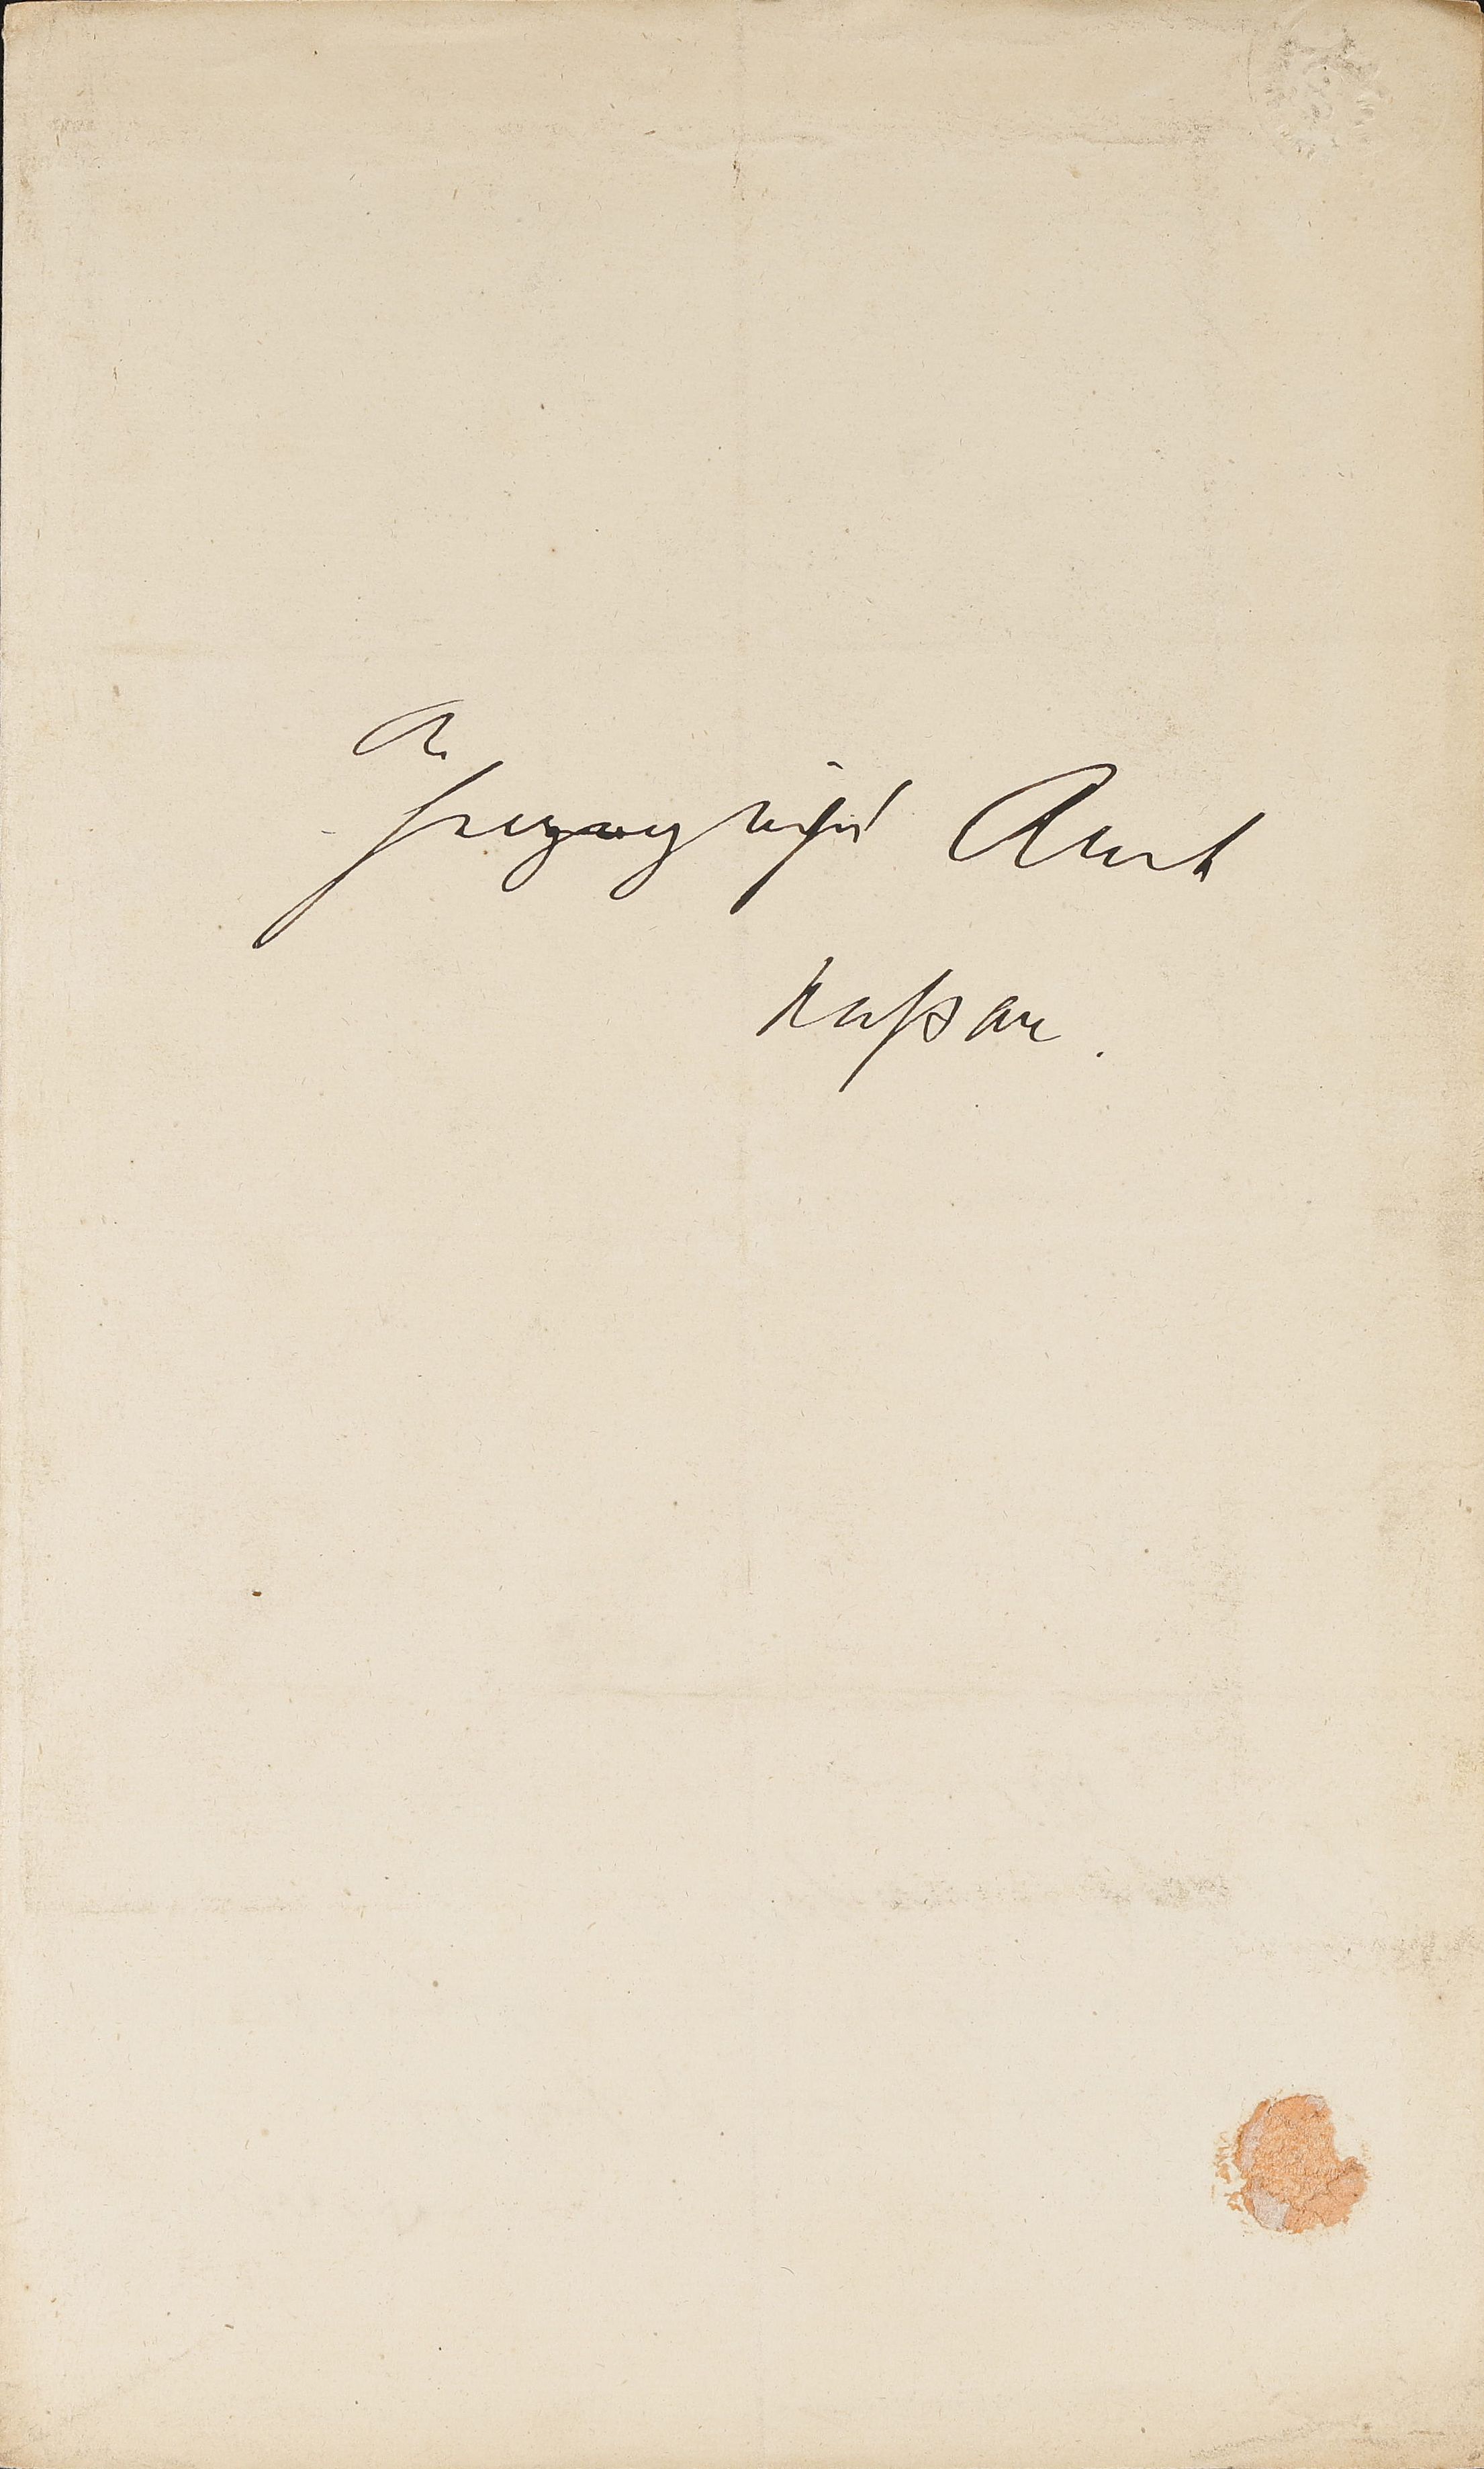 An
Herzogliches Amt
Nassau.